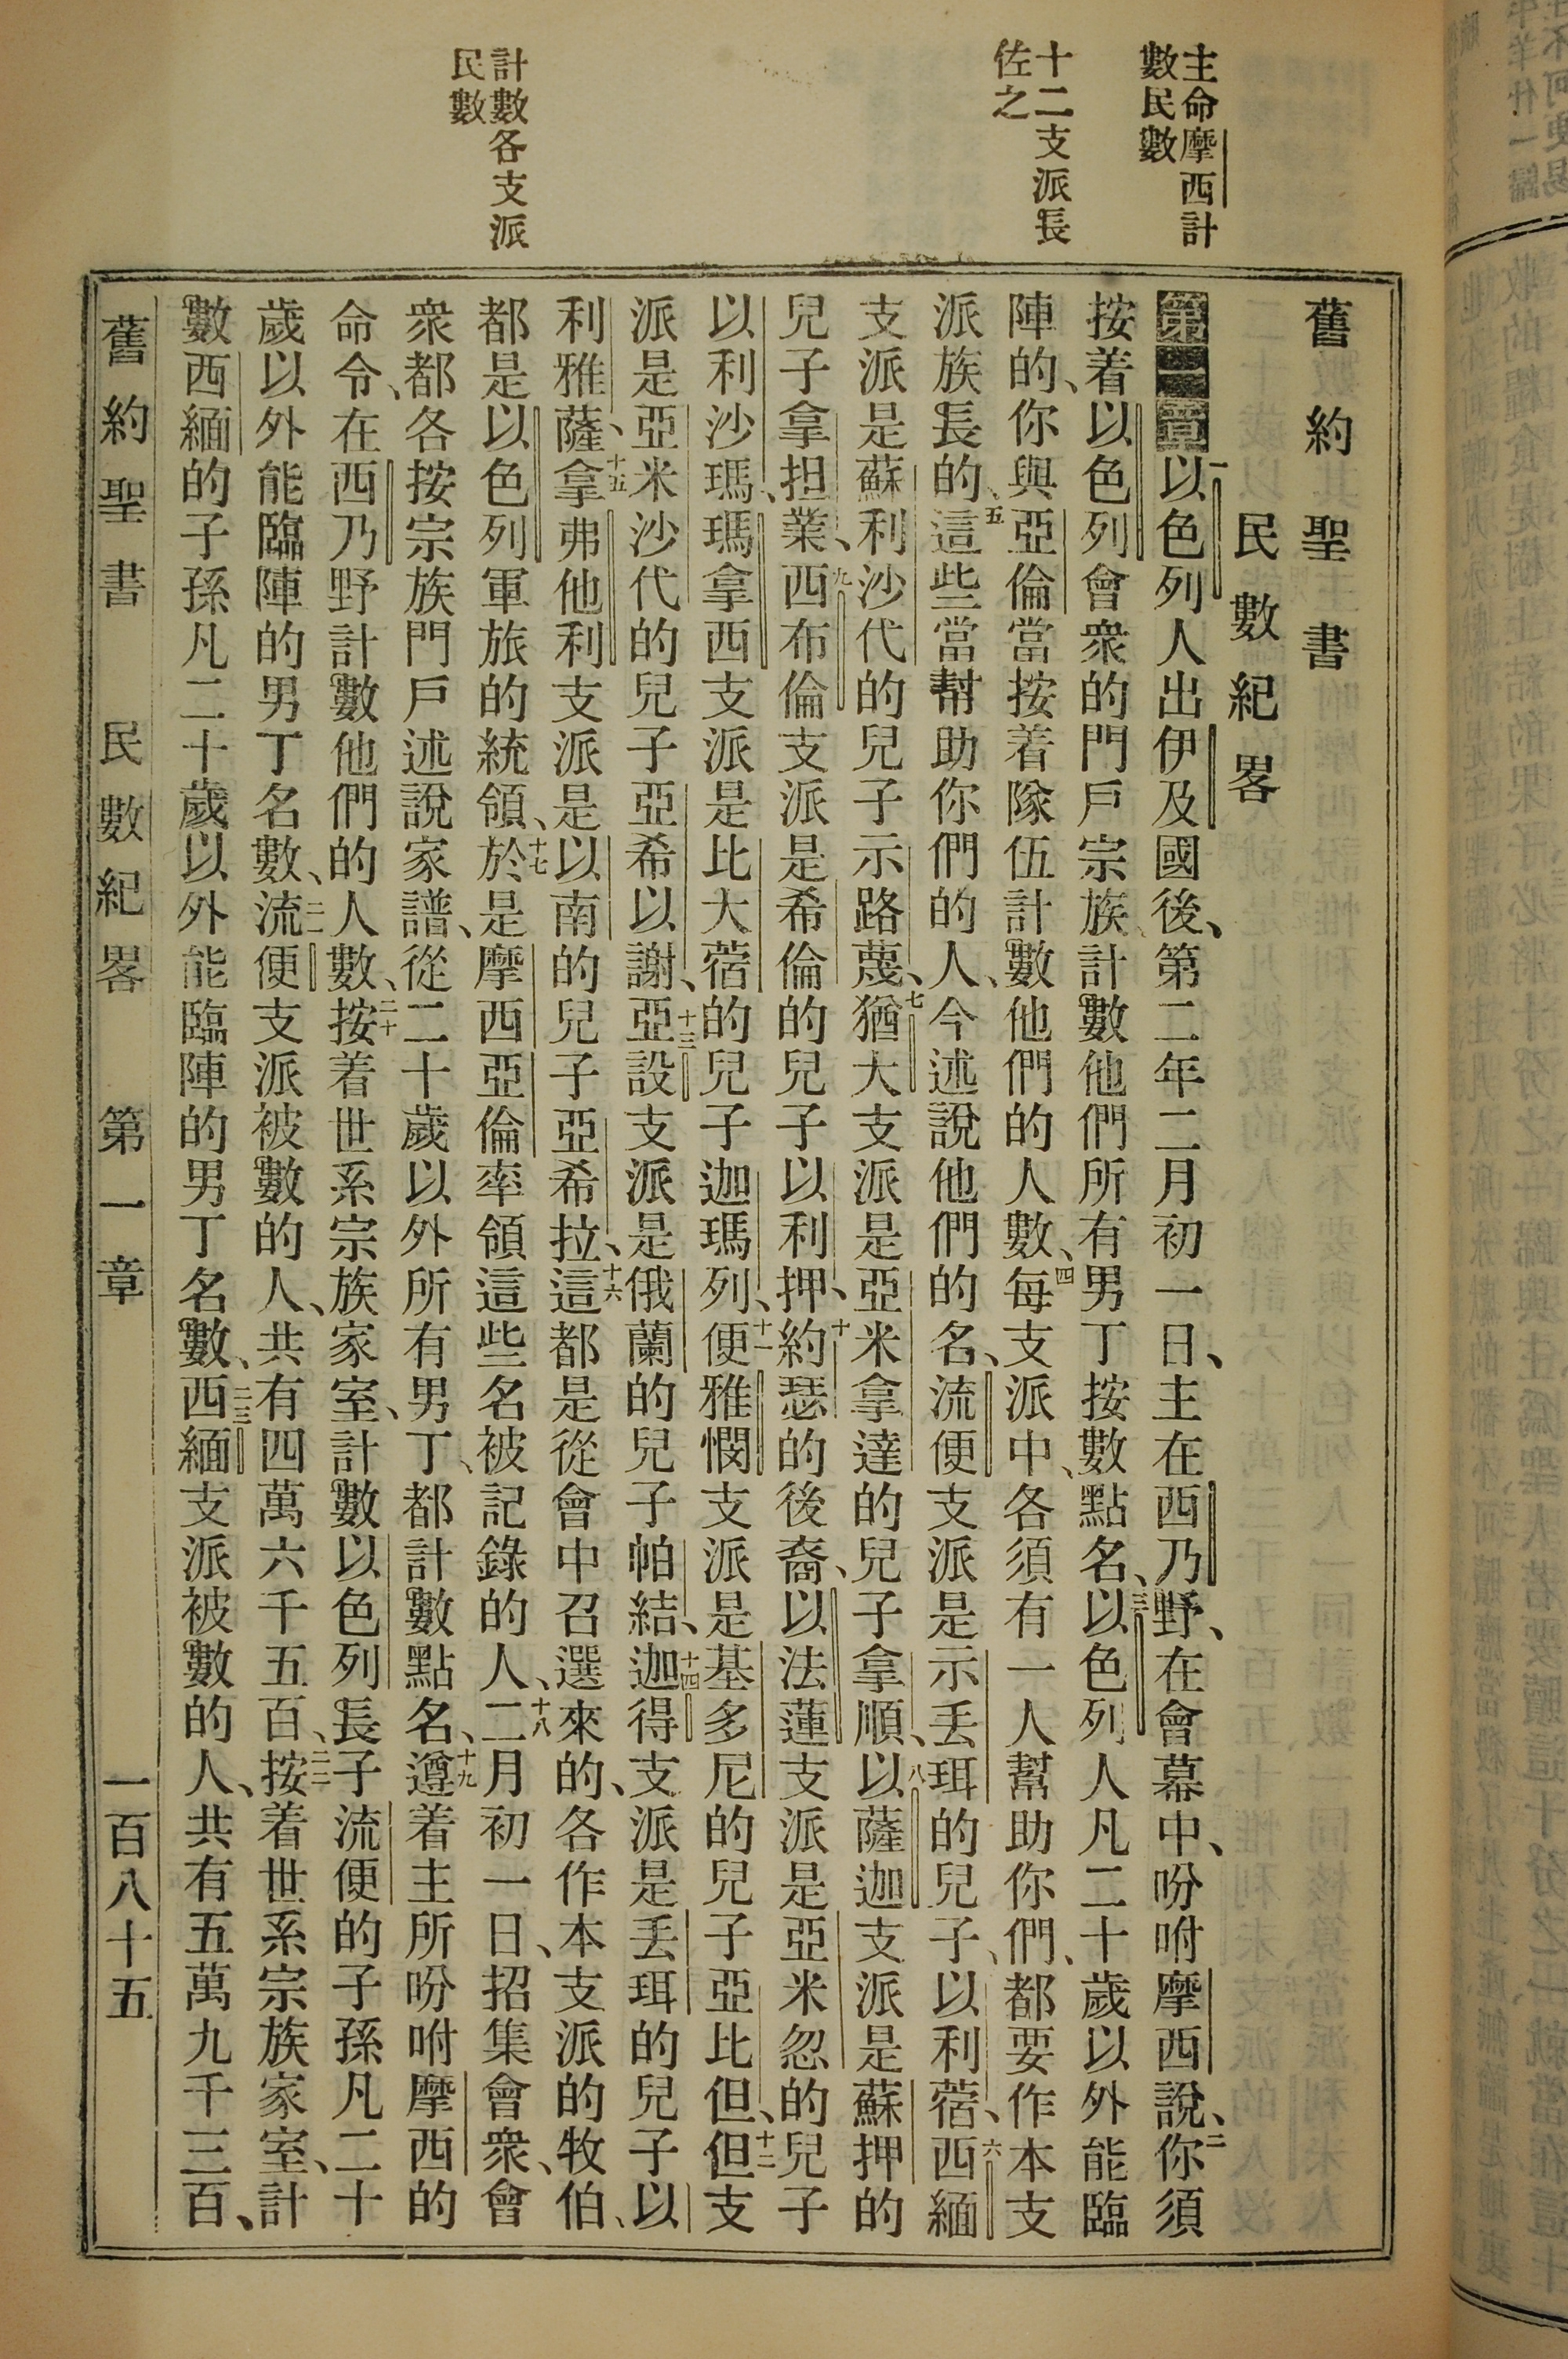 主命摩西計
數民數
十二支派長
佐之
計數各支派
民數
舊約聖書
民數紀畧
第一章一以色列人出伊及國後、第二年二月初一日、主在西乃野、在會幕中、吩咐摩西說、二你須
按着以色列會衆的門戶宗族、計數他們所有男丁按數點名、三以色列人凡二十歲以外能臨
陣的、你與亞倫當按着隊伍計數他們的人數、四每支派中、各須有一人幫助你們、都要作本支
派族長的、五這些當幫助你們的人、今述說他們的名、流便支派是示丟珥的兒子、以利蓿、六西緬
支派是蘇利沙代的兒子示路蔑、七猶大支派是亞米拿達的兒子拿順、八以薩迦支派是蘇押的
兒子拿担業、九西布倫支派是希倫的兒子以利押、十約瑟的後裔、以法蓮支派是亞米忽的兒子
以利沙瑪、瑪拿西支派是比大蓿的兒子迦瑪列、十一便雅憫支派是基多尼的兒子亞比但、十二但支
派是亞米沙代的兒子亞希以謝、十三亞設支派是俄蘭的兒子帕結、十四迦得支派是丟珥的兒子以
利雅薩、十五拿弗他利支派是以南的兒子亞希拉、十六這都是從會中召選來的、各作本支派的牧伯、
都是以色列軍旅的統領、十七於是摩西亞倫率領這些名被記錄的人、十八二月初一日、招集會衆、會
衆都各按宗族門戶述說家譜、從二十歲以外所有男丁、都計數點名、十九遵着主所吩咐摩西的
命令、在西乃野計數他們的人數、二十按着世系宗族家室、計數以色列長子流便的子孫凡二十
歲以外能臨陣的男丁名數、二一流便支派被數的人、共有四萬六千五百、二二按着世系宗族家室、計
數西緬的子孫凡二十歲以外能臨陣的男丁名數、二三西緬支派被數的人、共有五萬九千三百、
舊約聖書 民數紀畧 第一章 一百八十五